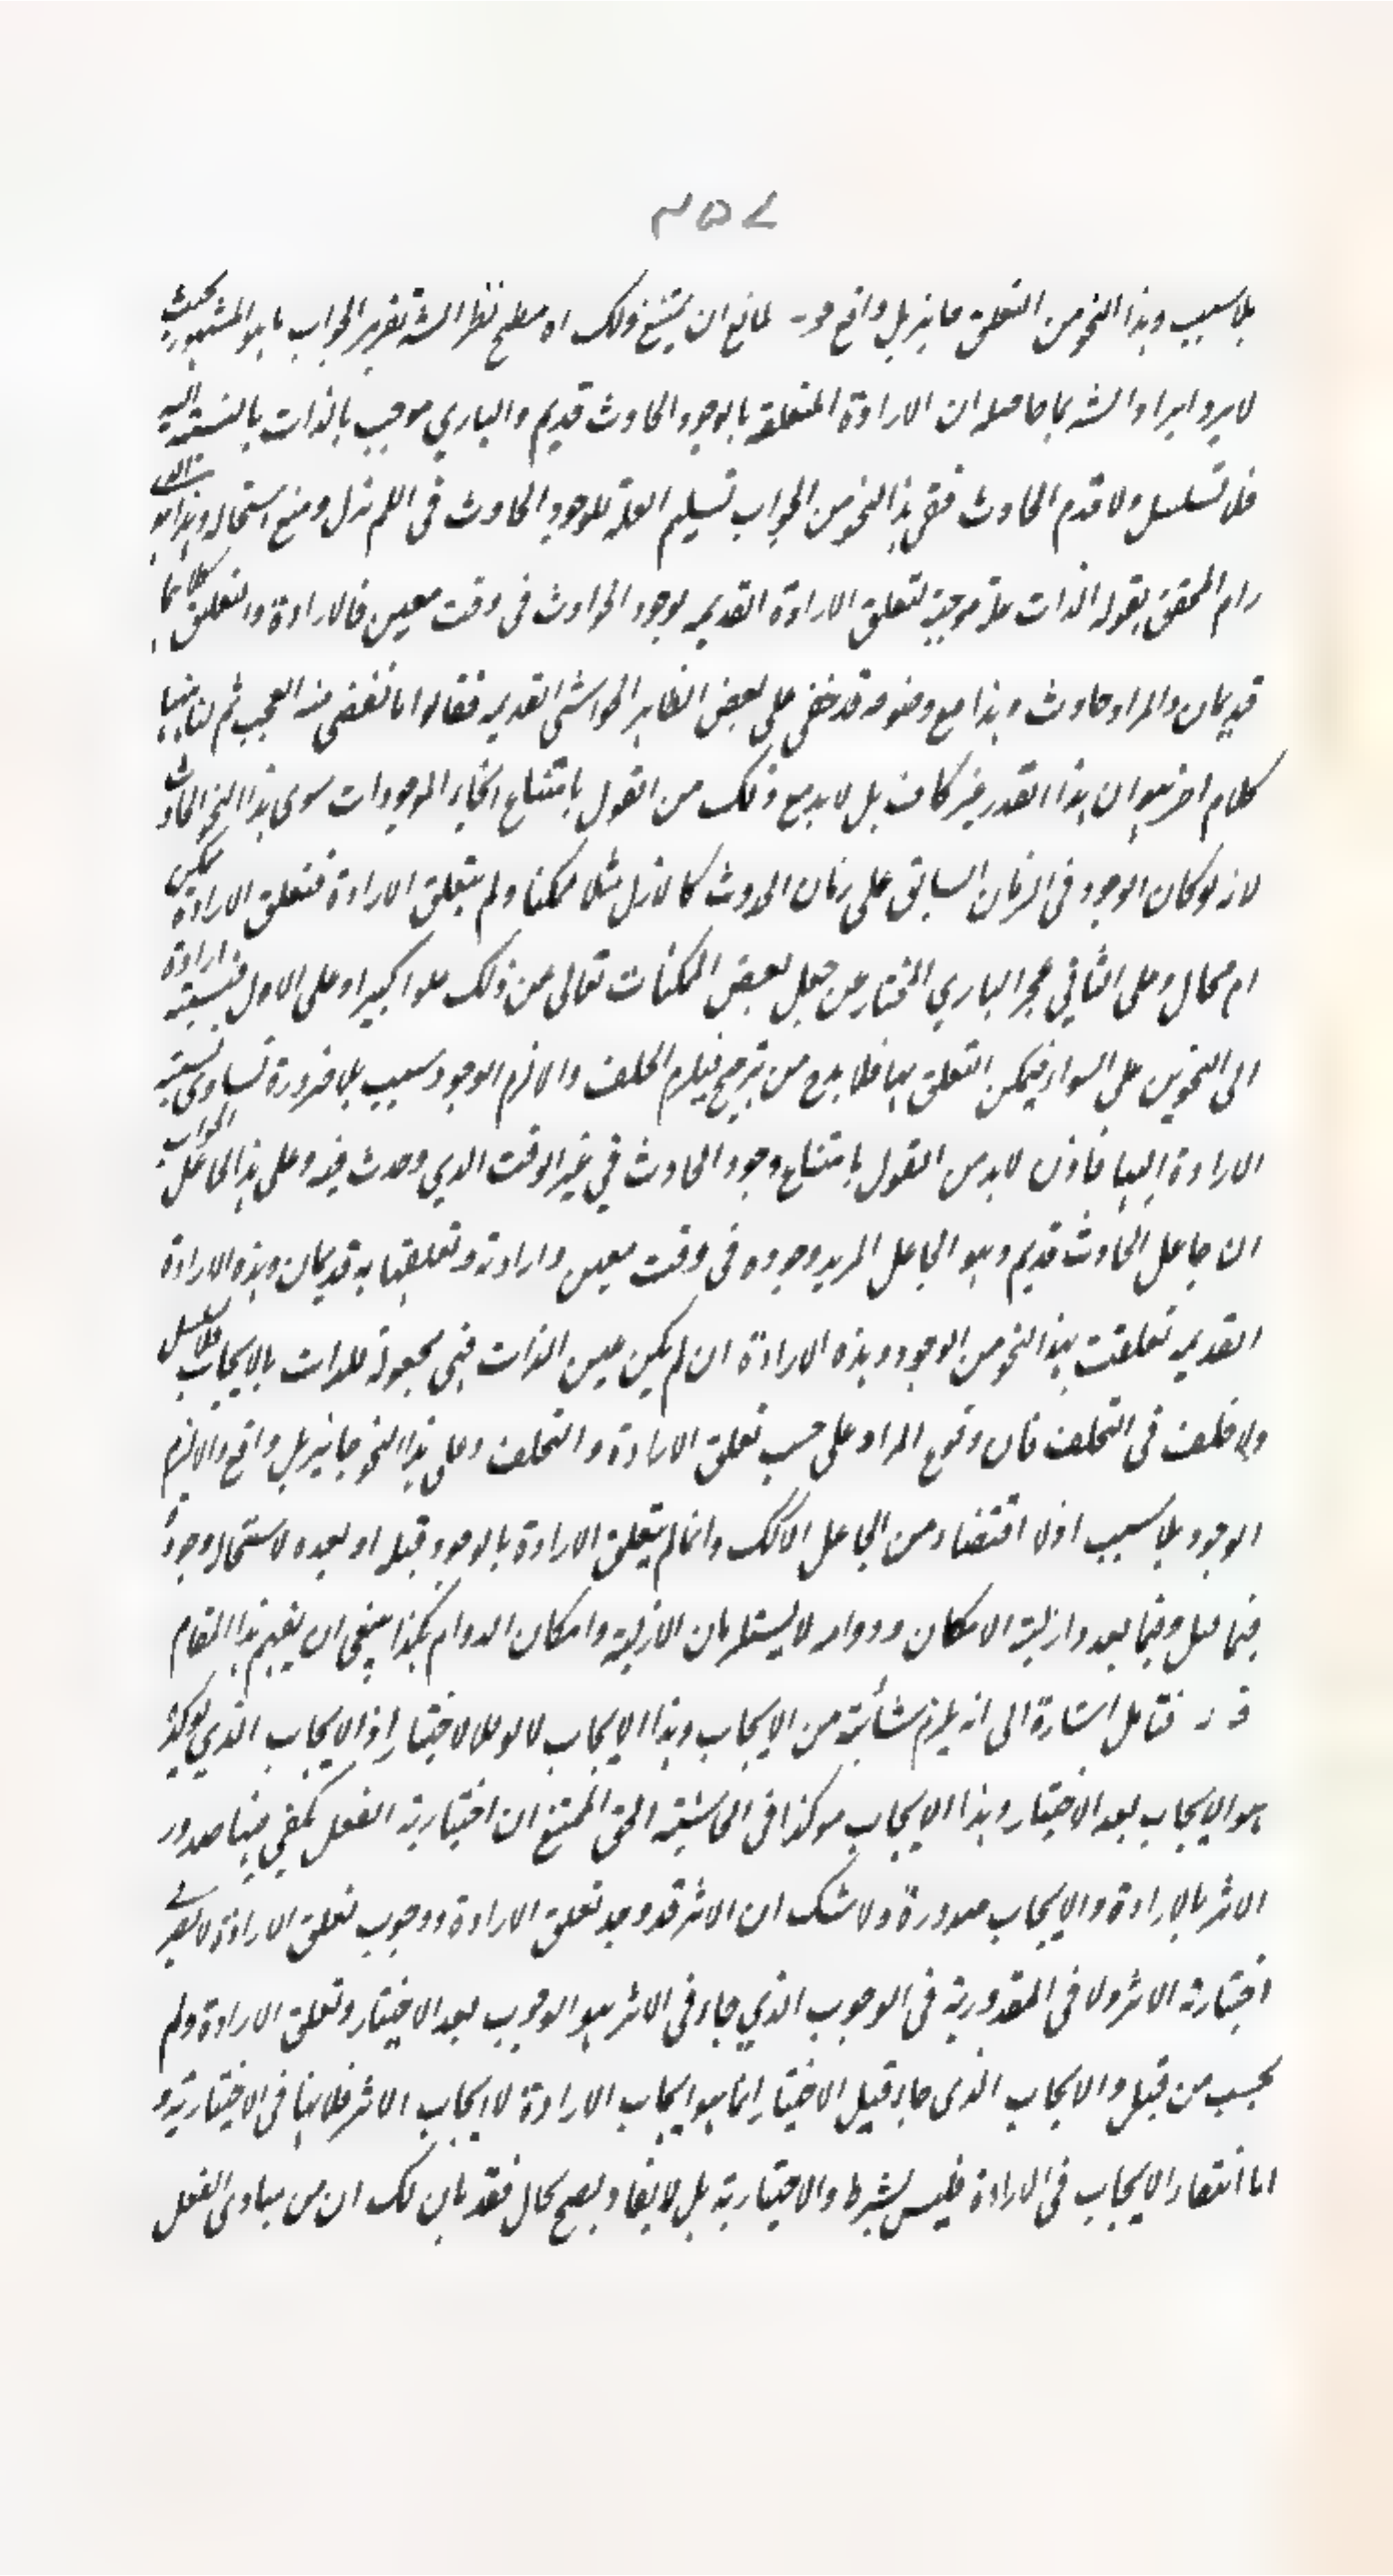 ٢٥٤
بلا سبب وهذا النحو من التعلق جائز بل واقع لمانع ان يمنع ذلك اه مطمح نظر الشه تقرير الجواب بما هو المشهور بحيث
لا يرد ايراد الشه بما حاصله ان الارادة المتعلقة بالوجود الحادث قديم والباري موجب بالذات بالنسبة اليه
فلا تسلسل ولا قدم الحادث ففي هذا النحو من الجواب تسليم العلة للوجود الحادث في اللم يزل ومنع استحالة
رام المحقق بقوله الذات علة موجبة لتعلق الارادة القديمه بوجود الحوادث في وقت معين فالارادة والتعلق كلاهما
قديمان والمراد حادث وهذا مع وضوحه قد خفي على بعض الحواشي القديمه فقالوا منه العجب ثم لنا ههنا
كلام اخر هو ان هذا القدر غير كاف بل لا بد مع ذلك من القول بامتناع انحاء الموجودات سوى هذا النحو الحادث
لانه لو كان الوجود في الزمان السابق على زمان الحدوث كالازل مثلا ممكنا ولم يتعلق الارادة فتعلق الارادة ممكن
ام محال وعلى الثاني عجز الباري المختار عن جعل بعض الممكنات تعالى عن ذلك علوا كبيرا وعلى الاول فنسبة ارادة
الى النحوين على السواء فيمكن التعلق بها فلا بد من ترجيح فيلزم الخلف والا لزم الوجود بلا سبب ضرورة تساوي نسبة
الارادة اليها فاذن لا بد من القول بامتناع وجود الحادث في غير الوقت الذي وحدث فيه وعلى هذا الجواب
ان جاعل الحادث قديم وهو الجاعل المريد وجوده في وقت معين وارادته وتعلقها به قديمان وهذه الارادة
القديمه تعلقت بهذا النحو من الوجود وهذه الارادة ان لم يكن عين الذات فهي مجعولة للذات بالايجاب فلا تسلسل
ولا خلف في التخلف فان وقوع المراد على حسب تعلق الارادة والتخلف وعلى هذا النحو جائز بل واقع والا لزم
الوجود بلا سبب اذ لا اقتضاء من الجاعل الا كك وانما لم يتعلق الارادة بالوجود قبله او بعده لاستحالة وجوده
فيما قبل وفيما بعد وازلية الامكان ودوامه لا يستلزمان الازلية وامكان الدوام هكذا ينبغي ان يفهم هذا المقام
فتامل اشارة الى انه يلزم شائبة من الايجاب وهذا الايجاب الاختيار اذ الايجاب الذي يوكد
هو الايجاب بعد الاختيار وهذا الايجاب موكذا في الحاشية الحق ان اختيارية الفعل يكفي فيها صدور
الاثر بالارادة والايجاب صدوره ولا شك ان الاثر قد وجد تعلق الارادة ووجوب تعلق الارادة لا يضر في
اختيارية الاثر ولا في المقدورية في الوجوب الذي جاء في الاثر هو الوجوب بعد الاختيار وتعلق الارادة ولم
يجب من قبل والايجاب الذي جاء قبل الاختيار انما هو ايجاب الارادة لا ايجاب الاثر فلا ينافي الاختيارية و
اما انتفاء الايجاب في الارادة فليس بشرط والاختيارية بل لا يصح بحال فقد بان لك ان من مبادي الفعل